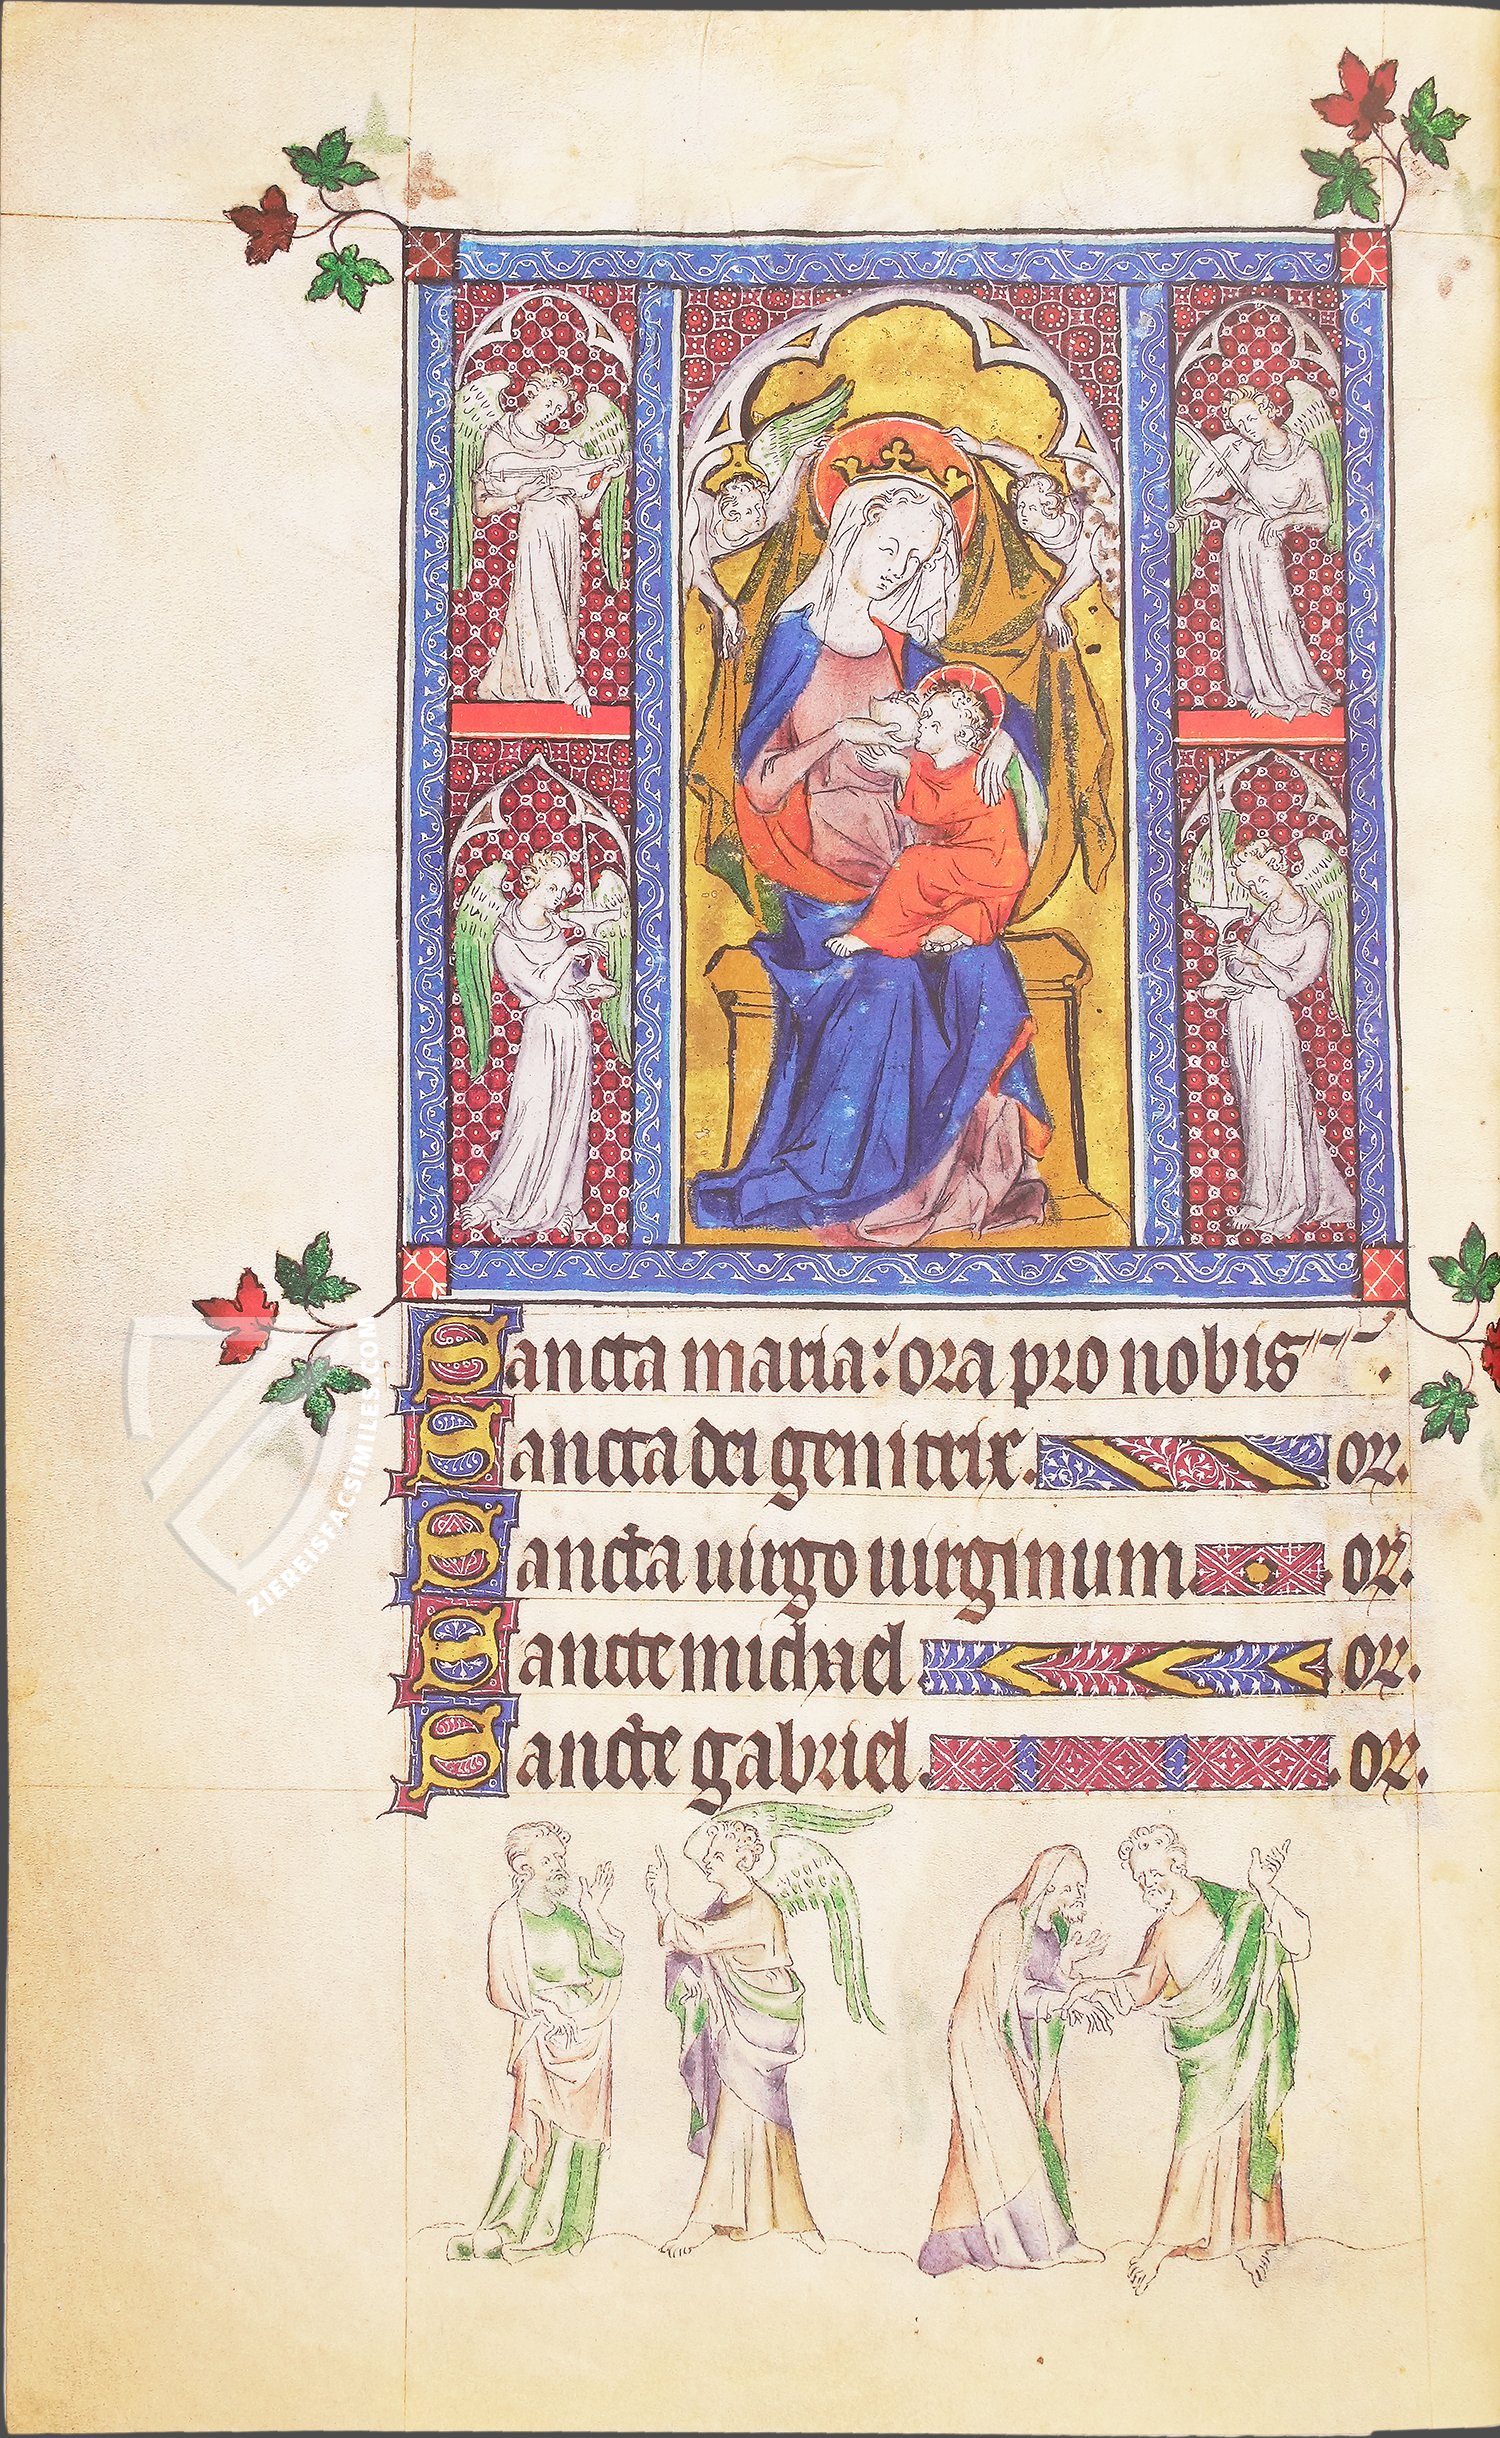 Sancta maria: ora pro nobis.
Sancta dei genitrix. or.
Sancta uirgo uirginum. or.
Sancte michael or.
Sancte gabriel. or.
ZIEREISFACSIMILES.COM